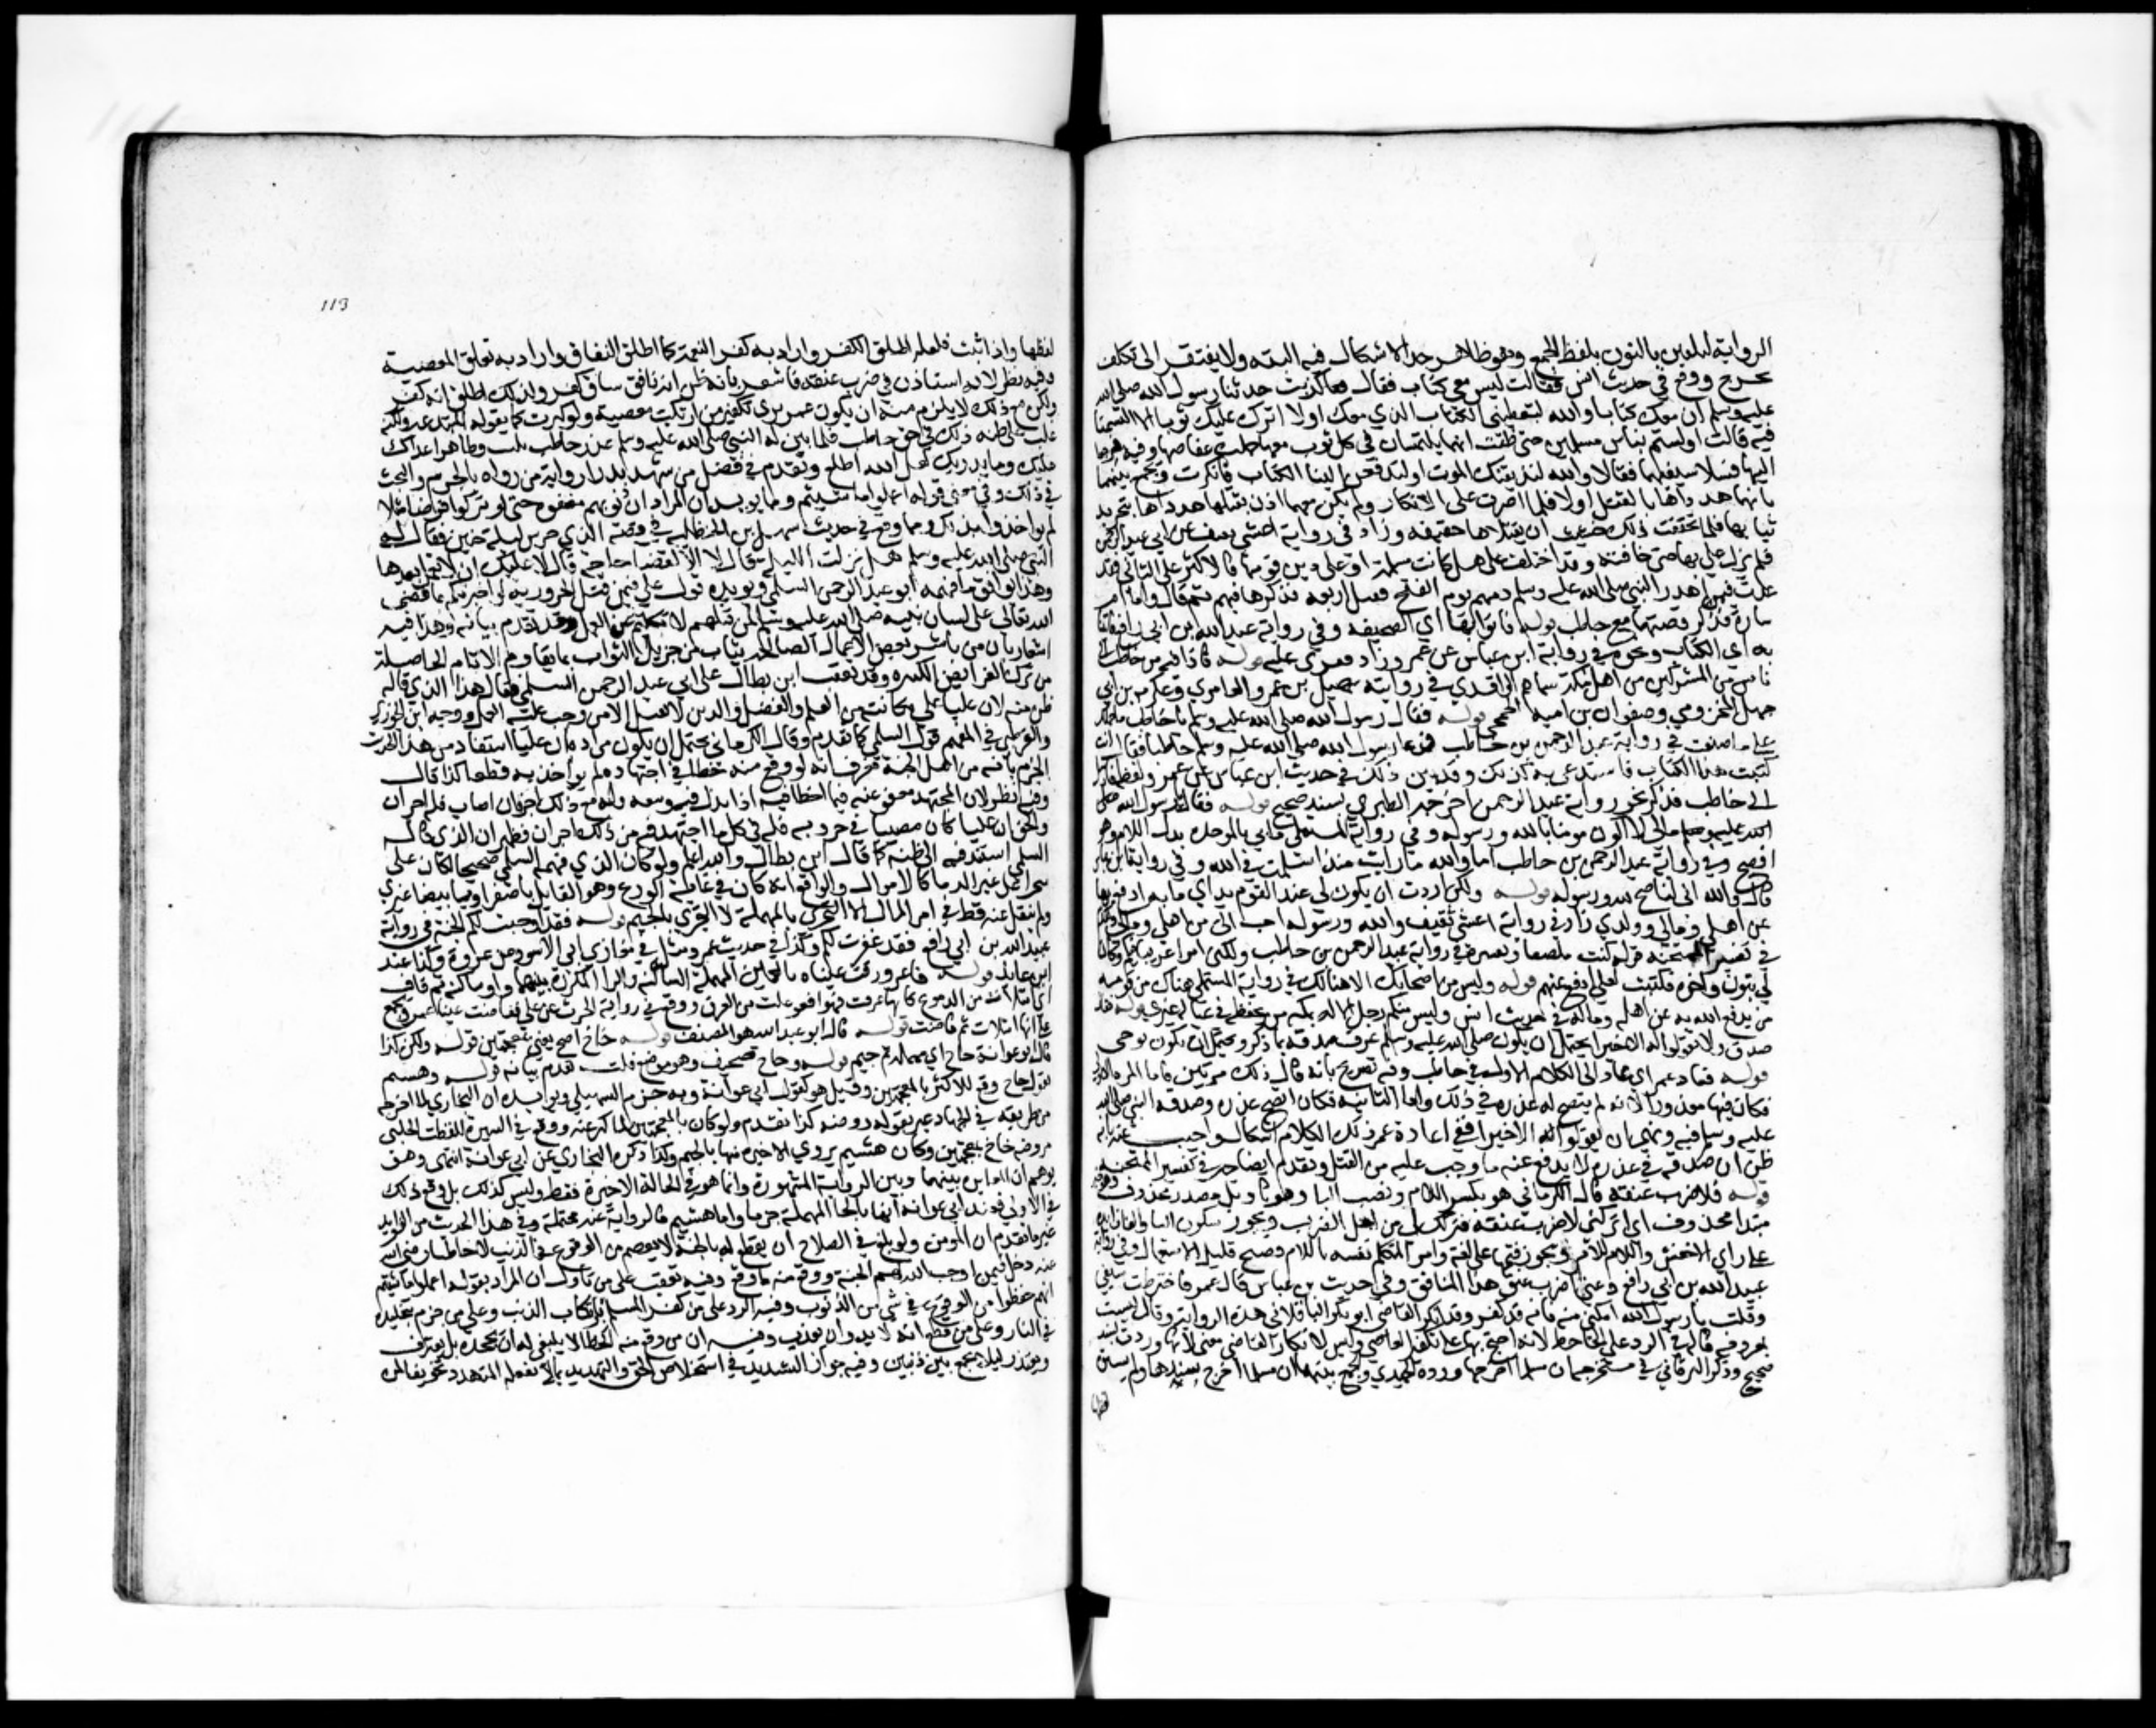 الرواية لتلقين بالنون بلفظ الجمع وهو ظاهر جدا لا اشكال فيه البتة ولا يفتقر الى تكلف
تخريج ووقع في حديث انس فقالت ليس معي كتاب فقال كذبت حدثنا رسول الله صلى الله
عليه وسلم ان معك كتابا والله لتعطيني الكتاب الذي معك اولا اترك عليك ثوبا الا التمسنا
فيه قالت اولستم بناس مسلمين حتى ظنت انهما يلتمسان في كل ثوب معها حلت عقاصها وفيه
اليها فسلا سيفيهما فقالا والله لنذيقنك الموت او لتدفعن الينا الكتاب فانكرت ويجمع بينهما
بانهما هدداها بالقتل اولا فلما اصرت على الانكار ولم يكن معهما اذن بقتلها هدداها بتجريد
ثيابها فلما تحققت ذلك خشيت ان يقتلاها حقيقة وزاد في رواية اعشى ثقيف عن ابي عبد الرحمن
فلم يزل علي بها حتى خافته وقد اختلف هل كانت مسلمة او على دين قومها فالاكثر على الثاني فقد
عدت فيمن اهدر النبي صلى الله عليه وسلم دمهم يوم الفتح
سارة فذكر قصتها مع حاطب قوله فاتوا بها اي الصحيفة وفي رواية عبيد الله بن ابي رافع فاتينا
به اي الكتاب ونحوه في رواية ابن عباس عن عمر وزاد فقرئ عليه قوله فاذا فيه من حاطب الى
ناس من المشركين من اهل مكة سماهم الواقدي في روايته سهيل بن عمرو العامري وعكرمة بن ابي
جهل المخزومي وصفوان بن امية الجمحي قوله فقال رسول الله صلى الله عليه وسلم يا حاطب ما حملك
على ما صنعت في رواية عبد الرحمن بن حاطب فدعا رسول الله صلى الله عليه وسلم حاطبا فقال انت
كتبت هذا الكتاب فاستدعى به كذلك وقد بين ذلك في حديث ابن عباس عن عمر ولفظه فارسل
الى حاطب فذكر نحو رواية عبد الرحمن اخرجه الطبري بسند صحيح قوله فقال يا رسول الله
ما لي ان لا اكون مومنا بالله ورسوله وفي رواية المستملي ما بي بالموحدة بدل اللام وهو
اوضح وفي رواية عبد الرحمن بن حاطب اما والله ما ارتبت منذ اسلمت في الله وفي رواية ابن عباس
قال والله اني لناصح لله ورسوله قوله ولكني اردت ان يكون لي عند القوم يد اي منة ادفع بها
عن اهلي ومالي وولدي زاد في رواية اعشى ثقيف والله ورسوله احب الي من اهلي ومالي
في تفسير الممتحنة قوله كنت ملصقا وتفسيره في رواية عبد الرحمن بن حاطب ولكني امرا غريبا فيكم وكان
لي بنون واخوة فكتبت لعلي ادفع عنهم قوله وليس من اصحابك الا هنالك في رواية المستملي هناك من قومه
من يدفع الله به عن اهله وماله في حديث انس وليس منكم رجل الا له بمكة من يحفظه في عياله غيري قوله قال
صدق ولا تقولوا له الا خيرا يحتمل ان يكون صلى الله عليه وسلم عرف صدقه بما ذكر ويحتمل ان يكون بوحي
قوله فعاد عمر اي عاد الى الكلام الاول في حاطب وفيه تصريح بانه قال ذلك مرتين فاما المرة الاولى
فكان فيها معذورا لانه لم يتضح له عذره في ذلك واما الثانية فكان اتضح عذره وصدقه النبي صلى الله
عليه وسلم فيه ونهى ان يقولوا له الا خيرا ففي اعادة عمر ذلك الكلام اشكال واجيب عنه بانه
ظن ان صدقه في عذره لا يدفع عنه ما وجب عليه من القتل وتقدم ايضاحه في تفسير الممتحنة
قوله فلاضرب عنقه قال الكرماني هو بكسر اللام ونصب الباء وهو في تاويل مصدر محذوف وهو خبر
مبتدا محذوف اي اتركني لاضرب عنقه فتركك لي من اجل الضرب ويجوز سكون الباء والفاء زائدة
على راي الاخفش واللام للامر ويجوز فتحها على لغة وامر المتكلم نفسه باللام فصيح قليل الاستعمال وفي رواية
عبيد الله بن ابي رافع دعني اضرب عنق هذا المنافق وفي حديث ابن عباس قال عمر فاخترطت سيفي
وقلت يا رسول الله امكني منه فانه قد كفر وقد انكر القاضي ابو بكر الباقلاني هذه الرواية وقال ليست
بمعروفة قاله في الرد على الجاحظ لانه احتج بها على تكفير العاصي وليس لانكار القاضي معنى لانها وردت بسند
صحيح وذكر البرقاني في مستخرجه ان مسلما اخرجها ورده الحميدي والجمع بينهما ان مسلما اخرج سندها ولم يسق
لفظها
113
لفظها واذا ثبت فلعله اطلق الكفر واراد به كفر النعمة كما اطلق النفاق واراد به نفاق المعصية
وفيه نظر لانه استاذن في ضرب عنقه فاشعر بانه ظن انه نافق نفاق كفر ولذلك اطلق انه كفر
ولكن مع ذلك لا يلزم منه ان يكون عمر يرى تكفير من ارتكب معصية ولو كبرت كما يقوله المبتدعة ولكنه
غلب على ظنه ذلك في حق حاطب فلما بين له النبي صلى الله عليه وسلم عذر حاطب رجع
قوله وما يدريك لعل الله اطلع وتقدم في فضل من شهد بدرا رواية من رواه بالجزم والبحث
في ذلك وفي معنى قوله اعملوا ما شئتم ومما يويد ان المراد ان ذنوبهم مغفورة حتى لو تركوا فرضا مثلا
لم يواخذوا بذلك وما وقع في حديث سهل بن الحنظلية في قصة الذي حرس ليلة حنين فقال له
النبي صلى الله عليه وسلم هل نزلت الليلة قال لا الا لقضاء حاجة قال لا عليك ان لا تعمل بعدها
وهذا يوافق ما فهمه ابو عبد الرحمن السلمي ويويده قول علي فيمن قتل الحرورية لو اخبرتكم بما قضى
الله تعالى على لسان نبيه صلى الله عليه وسلم لمن قتلهم لنكلتم عن العمل وقد تقدم بيانه وهذا فيه
اشعار بان من باشر بعض الاعمال الصالحة يثاب من جزيل الثواب بما يقاوم الاثام الحاصلة
من ترك الفرائض الكثيرة وقد تعقب ابن بطال على ابي عبد الرحمن السلمي فقال هذا الذي قاله
ظن منه لان عليا على مكانته من العلم والفضل والدين لا يقتل الا من وجب عليه القتل ووجه ابن الجوزي
والقرطبي في المفهم قول السلمي كما تقدم وقال الكرماني يحتمل ان يكون مراده ان عليا استفاد من هذا الحديث
الجزم بانه من اهل الجنة فعرف انه لو وقع منه خطا في اجتهاده لم يواخذ به قطعا كذا قال
وفيه نظر لان المجتهد معفو عنه فيما اخطا فيه اذا بذل فيه وسعه وله مع ذلك اجر فان اصاب فله اجران
والحق ان عليا كان مصيبا في حروبه فله في كل ما اجتهد فيه من ذلك اجران فظهر ان الذي قاله
السلمي استند فيه الى ظنه كما قال ابن بطال والله اعلم ولو كان الذي فهمه السلمي صحيحا لكان علي
يتجرا على غير الدماء كالاموال والواقع انه كان في غاية الورع وهو القائل يا صفراء ويا بيضاء غري غيري
ولم ينقل عنه قط في امر المال الا التحري بالمهملة لا التجري بالجيم قوله فقد اوجبت لكم الجنة في رواية
عبيد الله بن ابي رافع فقد غفرت لكم وكذا في حديث عمر ومثله في مغازي ابي الاسود عن عروة وكذا عند
ابن عائذ قوله فاغرورقت عيناه بالغين المعجمة الساكنة والراء المكررة بينهما واو ساكنة ثم قاف
اي امتلات من الدموع كانها غرقت فهو افعوعلت من الغرق ووقع في رواية الحرث عن علي ففاضت عينا عمر ويجمع
على انها امتلات ثم فاضت قوله قال ابو عبد الله هو المصنف قوله خاخ اصح يعني بمعجمتين قوله ولكن كذا
قال ابو عوانة حاج اي بمهملة ثم جيم قوله وحاج تصحيف وهو موضع قلت تقدم بيانه قوله وهشيم
يقول خاخ وقع للاكثر بالمعجمتين وقيل هو كقول ابي عوانة وبه جزم السهيلي ويويده ان البخاري لما اخرجه
من طريقه في الجهاد عبر بقوله روضة كذا تقدم ولو كان بالمعجمتين لما كنى عنه ووقع في السيرة للقطب الحلبي
روضة خاخ بمعجمتين وكان هشيم يروي الاخيرة منها بالجيم وكذا ذكره البخاري عن ابي عوانة انتهى وهو
يوهم ان المغايرة بينهما وبين الرواية المشهورة وانما هو في الخاء الاخيرة فقط وليس كذلك بل وقع كذلك
في الاولى فعند ابي عوانة انها بالحاء المهملة جزما واما هشيم فالرواية عنه محتملة وفي هذا الحديث من الفوايد
غير ما تقدم ان المومن ولو بلغ في الصلاح ان يقطع له بالجنة لا يعصم من الوقوع في الذنب لان حاطبا
دخل فيمن اوجب الله لهم الجنة ووقع منه ما وقع وفيه تعقب على من تاول ان المراد بقوله اعملوا ما شئتم
انهم حفظوا من الوقوع في شي من الذنوب وفيه الرد على من كفر المسلم بارتكاب الذنب وعلى من جزم بتخليده
في النار وعلى من قطع انه لا بد وان يعذب وفيه ان من وقع منه الخطا لا ينبغي له ان يجحده بل يعترف
ويعتذر ليلا يجمع بين ذنبين وفيه جواز التشديد في استخلاص الحق والتهديد بما لا يفعله المتهدد تخويفا لمن